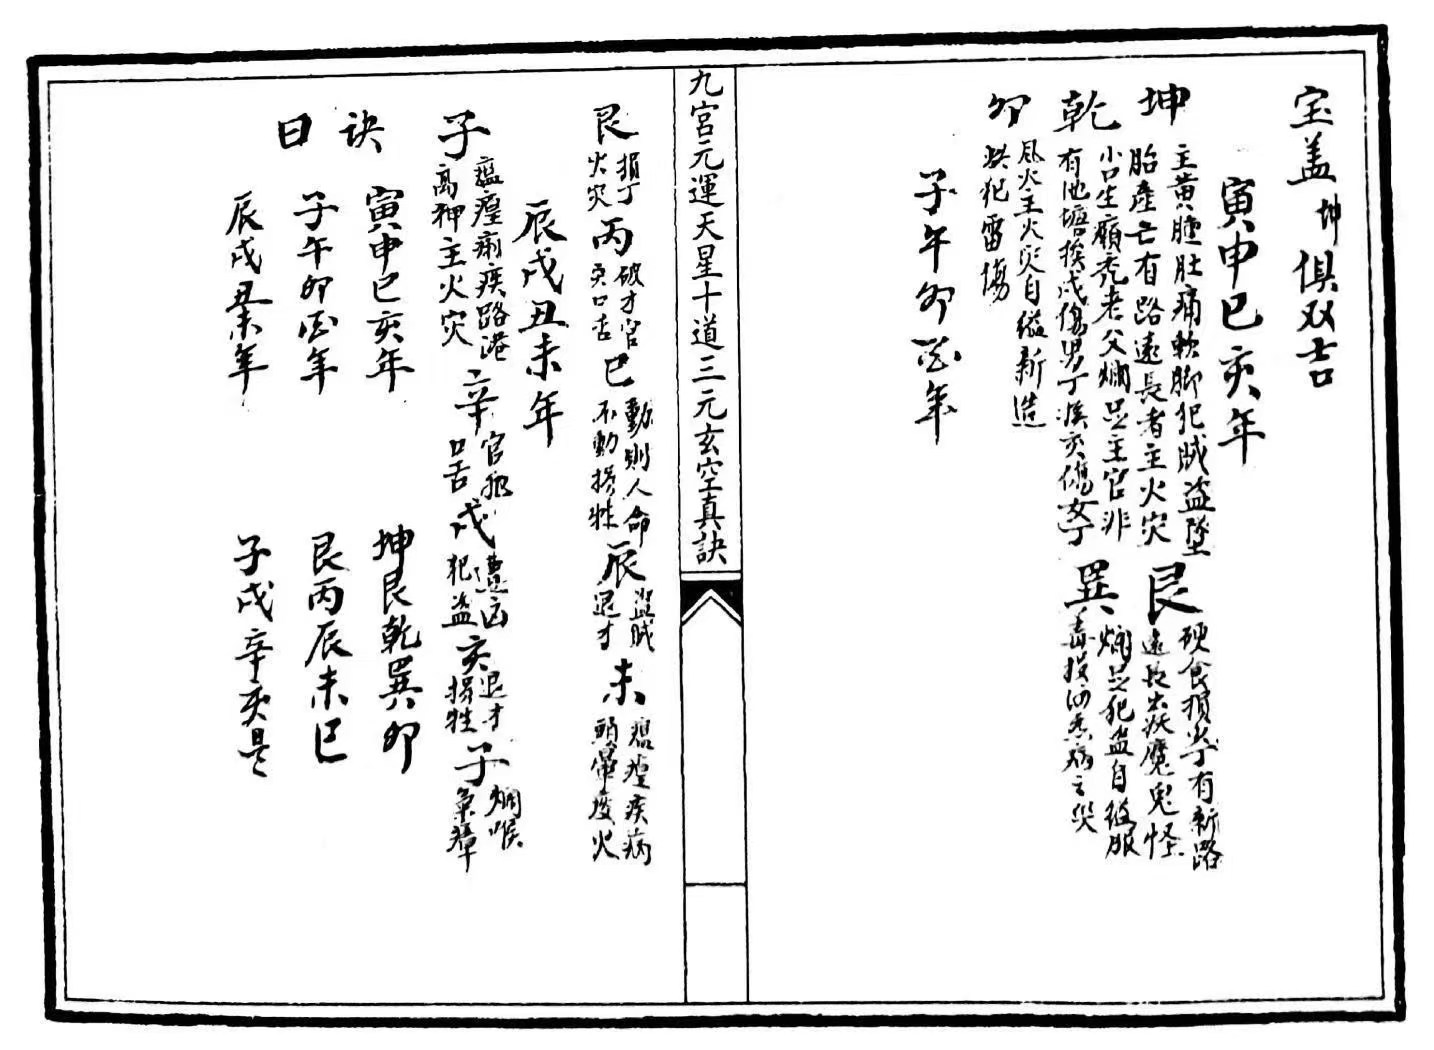 宝盖坤俱双吉
寅申巳亥年
坤
主黄腫肚痛軟脚犯賊盗墜
胎産亡有路遠長者主火灾
小口生癩禿老父爛足主官非
艮
硬食損少丁有新路
遠長出妖魔鬼怪
乾
有池塘挨戌傷男丁挨亥傷女丁
巽
爛足犯盗自縊服
毒投河悪病之災
卯
風火主火災自縊新造
珙犯雷傷
子午卯酉年
九宮元運天星十道三元玄空真訣
艮
損丁
火灾
丙
破才官
灾口舌
巳
動則人命
不動損牲
辰
盗賊
退才
未
瘟瘟疾病
顛暈疫火
辰戌丑未年
子
瘟瘟痢疾路港
高神主火灾
辛
官非
口舌
戌
遭凶
犯盗
亥
退才
損牲
子
爛喉
氣瘴
訣曰
寅申巳亥年 坤艮乾巽卯
子午卯酉年 艮丙辰未巳
辰戌丑未年 子戌辛亥是